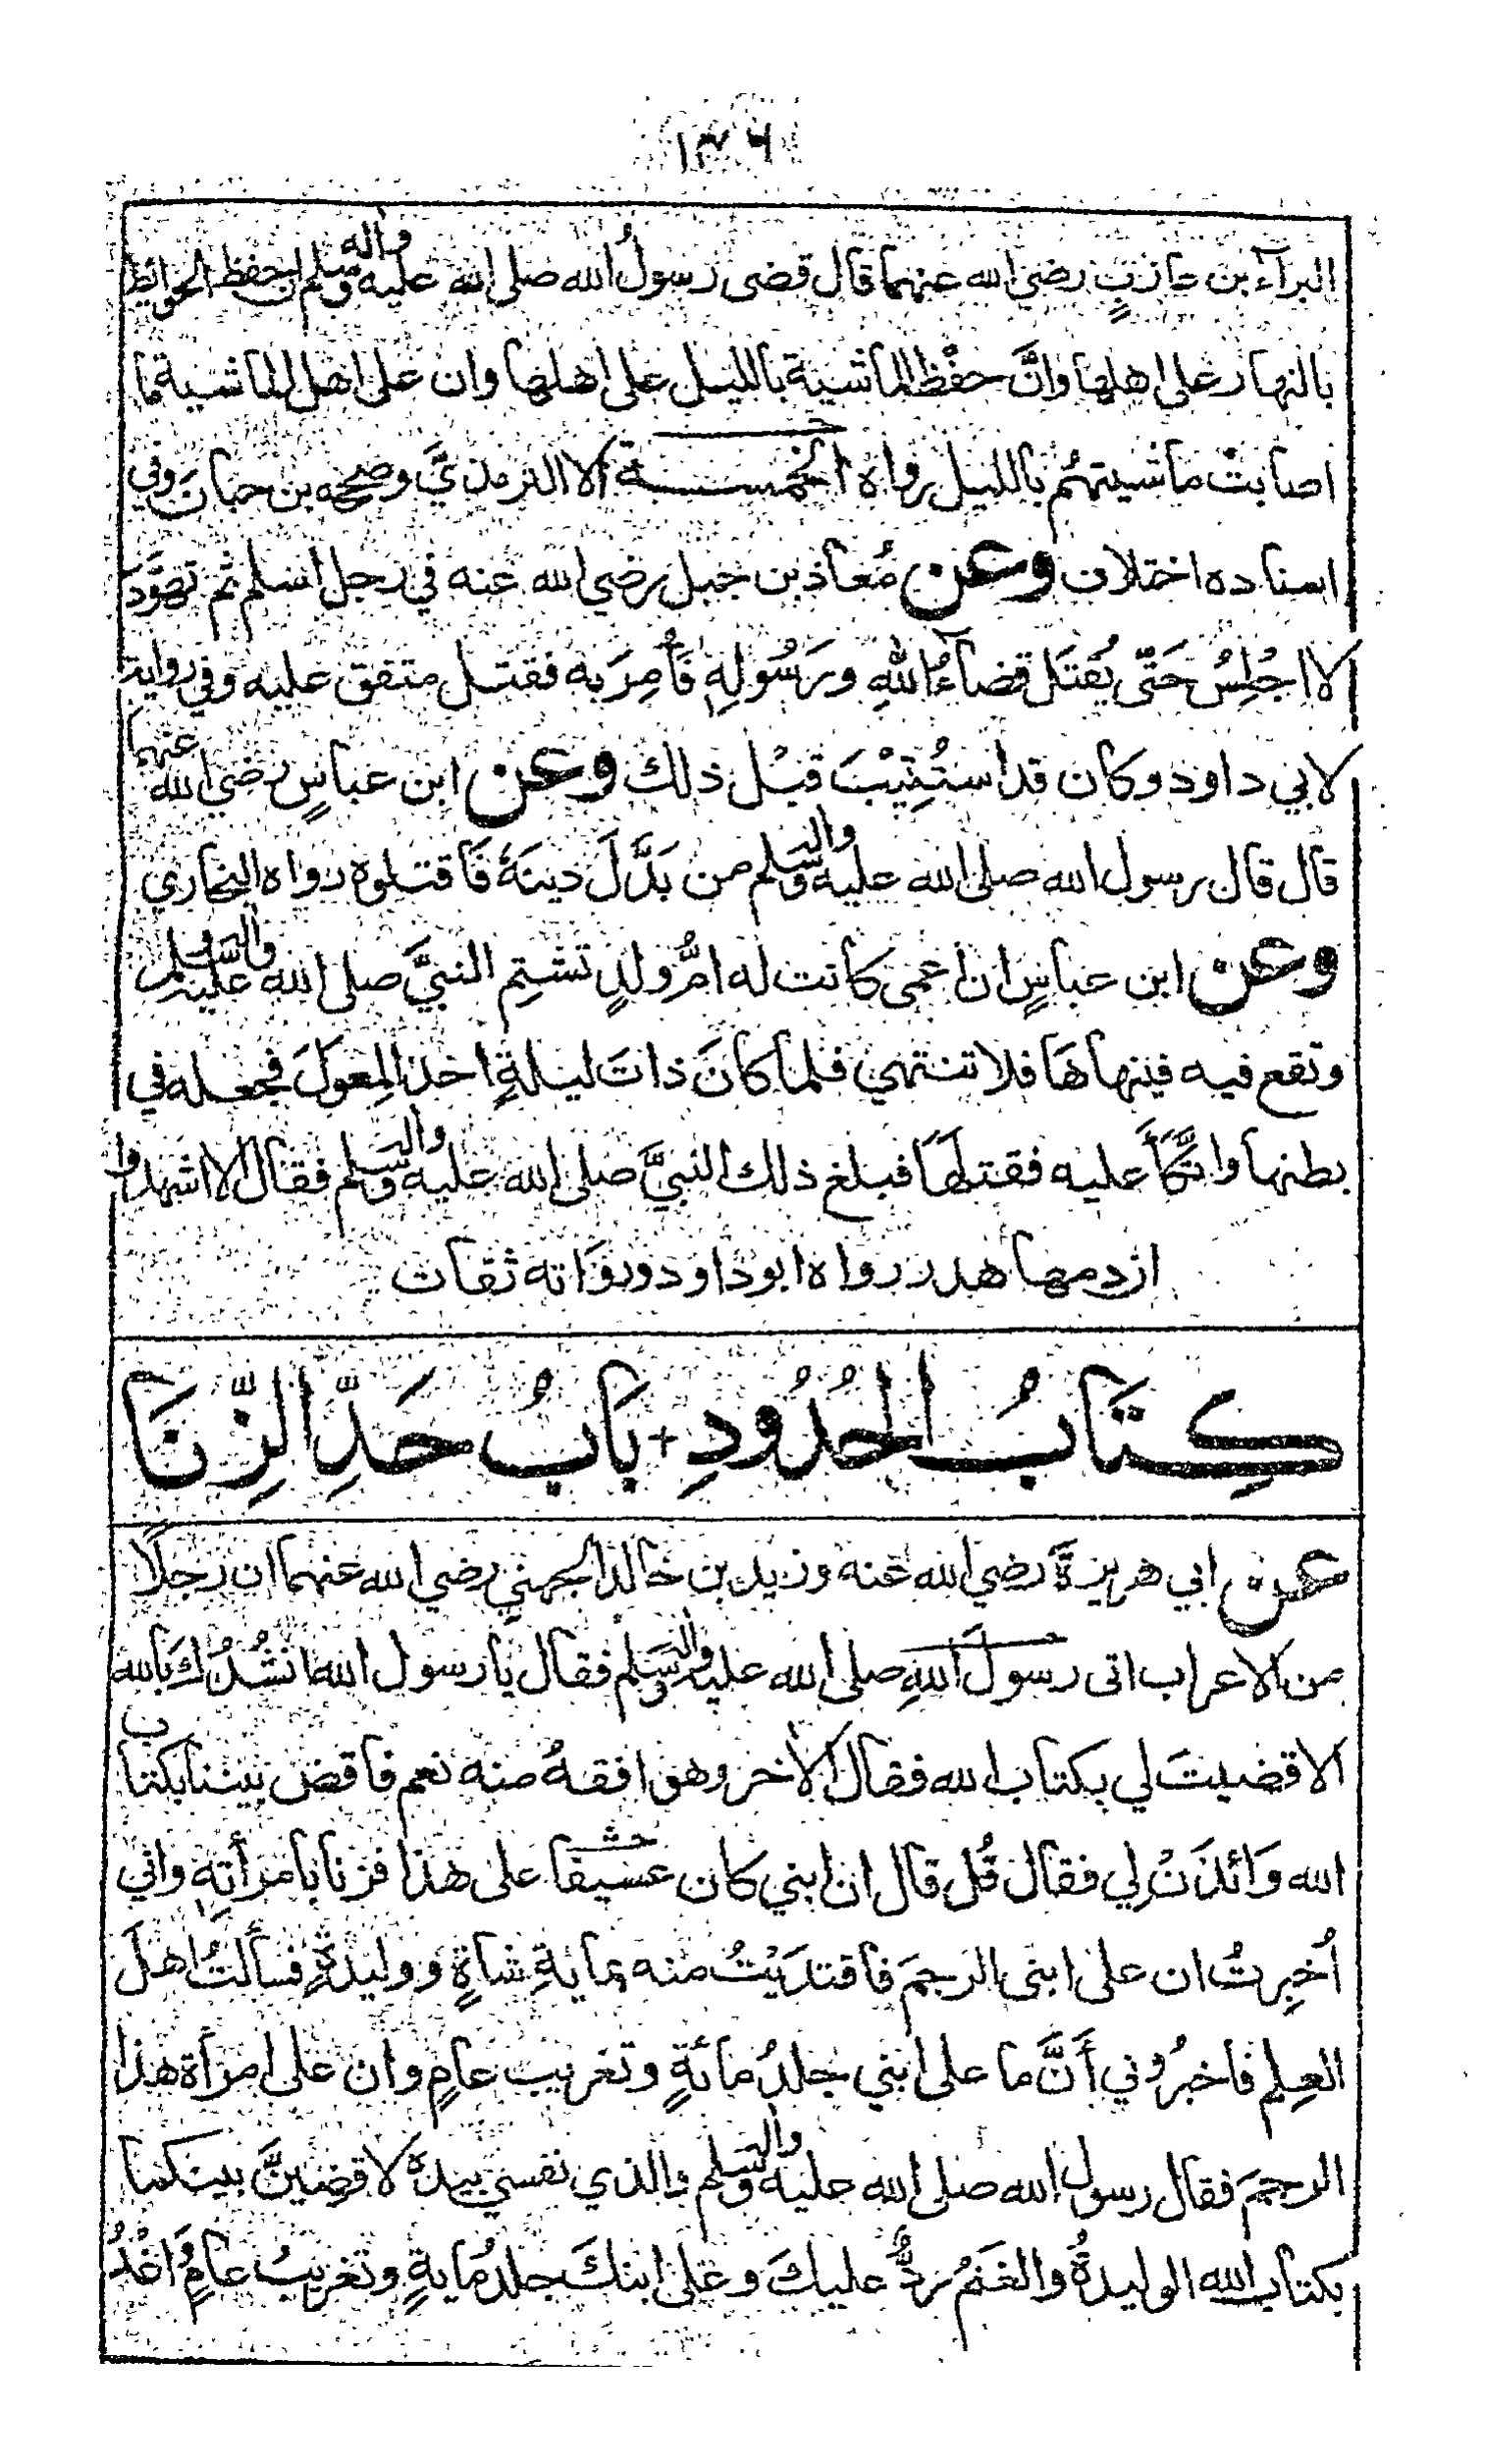 ١٣٦
البرآء بن عازبٍ رضي الله عنهما قال قضى رسولُ الله صلى الله عليه واله وسلم ان حفظ الحوائط
بالنهار على اهلها وانَّ حفْظ الماشية بالليل على اهلها وان على اهل الماشية ما
اصابتْ ماشيتهُم بالليل رواه الخمسة الا الترمذيَّ وصححه بن حبانَ وفي
اسناده اختلاف وعن مُعاذ بن جبل رضي الله عنه في رجل اسلم ثم تهوَّد
لا اجْلِسُ حَتّى يُقتَل قضآءُ اللهِ ورَسُولِهِ فأُمِرَ به فقتل متفق عليه وفي رواية
لابي داود وكان قد استُتِيْبَ قبْل ذلك وعن ابن عباسٍ رضي الله عنهما
قال قال رسول الله صلى الله عليه واله وسلم من بَدَّلَ دينَهُ فَاقتلوه رواه البخاري
وعن ابن عباسٍ ان اعمى كانت له امُّ ولدٍ تشتِم النبيَّ صلى الله عليه واله وسلم
وتقع فيه فينهاهَا فلا تنتهي فلما كانَ ذاتَ ليلةٍ اخذ المِعوَلَ فجعله في
بطنها واتَّكَأَ عليه فقتلهَا فبلغ ذلك النبيَّ صلى الله عليه واله وسلم فقال الا اشهدوا
ان دمها هدر رواه ابو داود ورواته ثقات
كِتَابُ الحُدُودِ + بَابُ حَدِّ الزِّنَا
عن ابي هريرةَ رضي الله عنه وزيد بن خالد الجهني رضي الله عنهما ان رجلًا
من الاعراب اتى رسولَ اللهِ صلى الله عليه واله وسلم فقال يا رسول الله انشُدُكَ بالله
الا قضيتَ لي بكتاب الله فقال الأخر وهو افقهُ منه نعم فاقض بيننا بكتاب
الله وَائذَنْ لي فقال قُل قال ان ابني كان عسيفا على هذا فزنا بامرأتِهِ واني
اُخبِرتُ ان على ابنى الرجمَ فافتدَيْتُ منه بمايةِ شاةٍ ووليدةٍ فسألتُ اهلَ
العِلم فاخبرُوني أنَّ ما على ابني جلدُ مائةٍ وتغريب عامٍ وان على امرأة هذا
الرجمَ فقال رسول الله صلى الله عليه واله وسلم والذي نفسي بيده لاقضِينَّ بينكما
بكتاب الله الوليدةُ والغنمُ ردٌّ عليكَ وعلى ابنكَ جلدُ مايةٍ وتغريبُ عامٍ اغْدُ